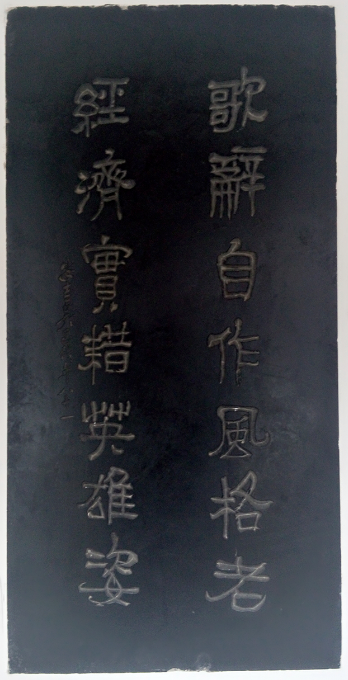 歌辭自作風格老
經濟實耤英雄姿